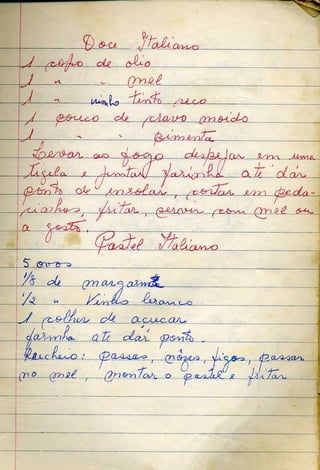 Doce Italiano
1 copo de olio
1 " " mel
1 " vinho tinto seco
1 pouco de cravo moido
1 " " pimenta
Levar ao fogo despejar em uma
tigela e juntar farinha ate dar
ponto de enrolar, cortar em peda-
cinhos, fritar, servir com mel ou
a gosto.
Pastel Italiano
5 ovos
1/8 de margarina
1/2 " Vinho branco
1 colher de açucar
farinha ate dar ponto.
Recheio: passas, nózes, figos, passar
no mel, montar o pastel e fritar